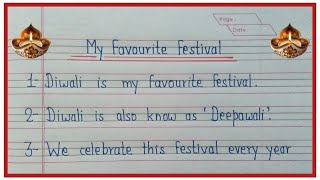 Page:
Date:
My Favourite Festival
1- Diwali is my favourite festival.
2- Diwali is also know as 'Deepawali'.
3- We celebrate this festival every year